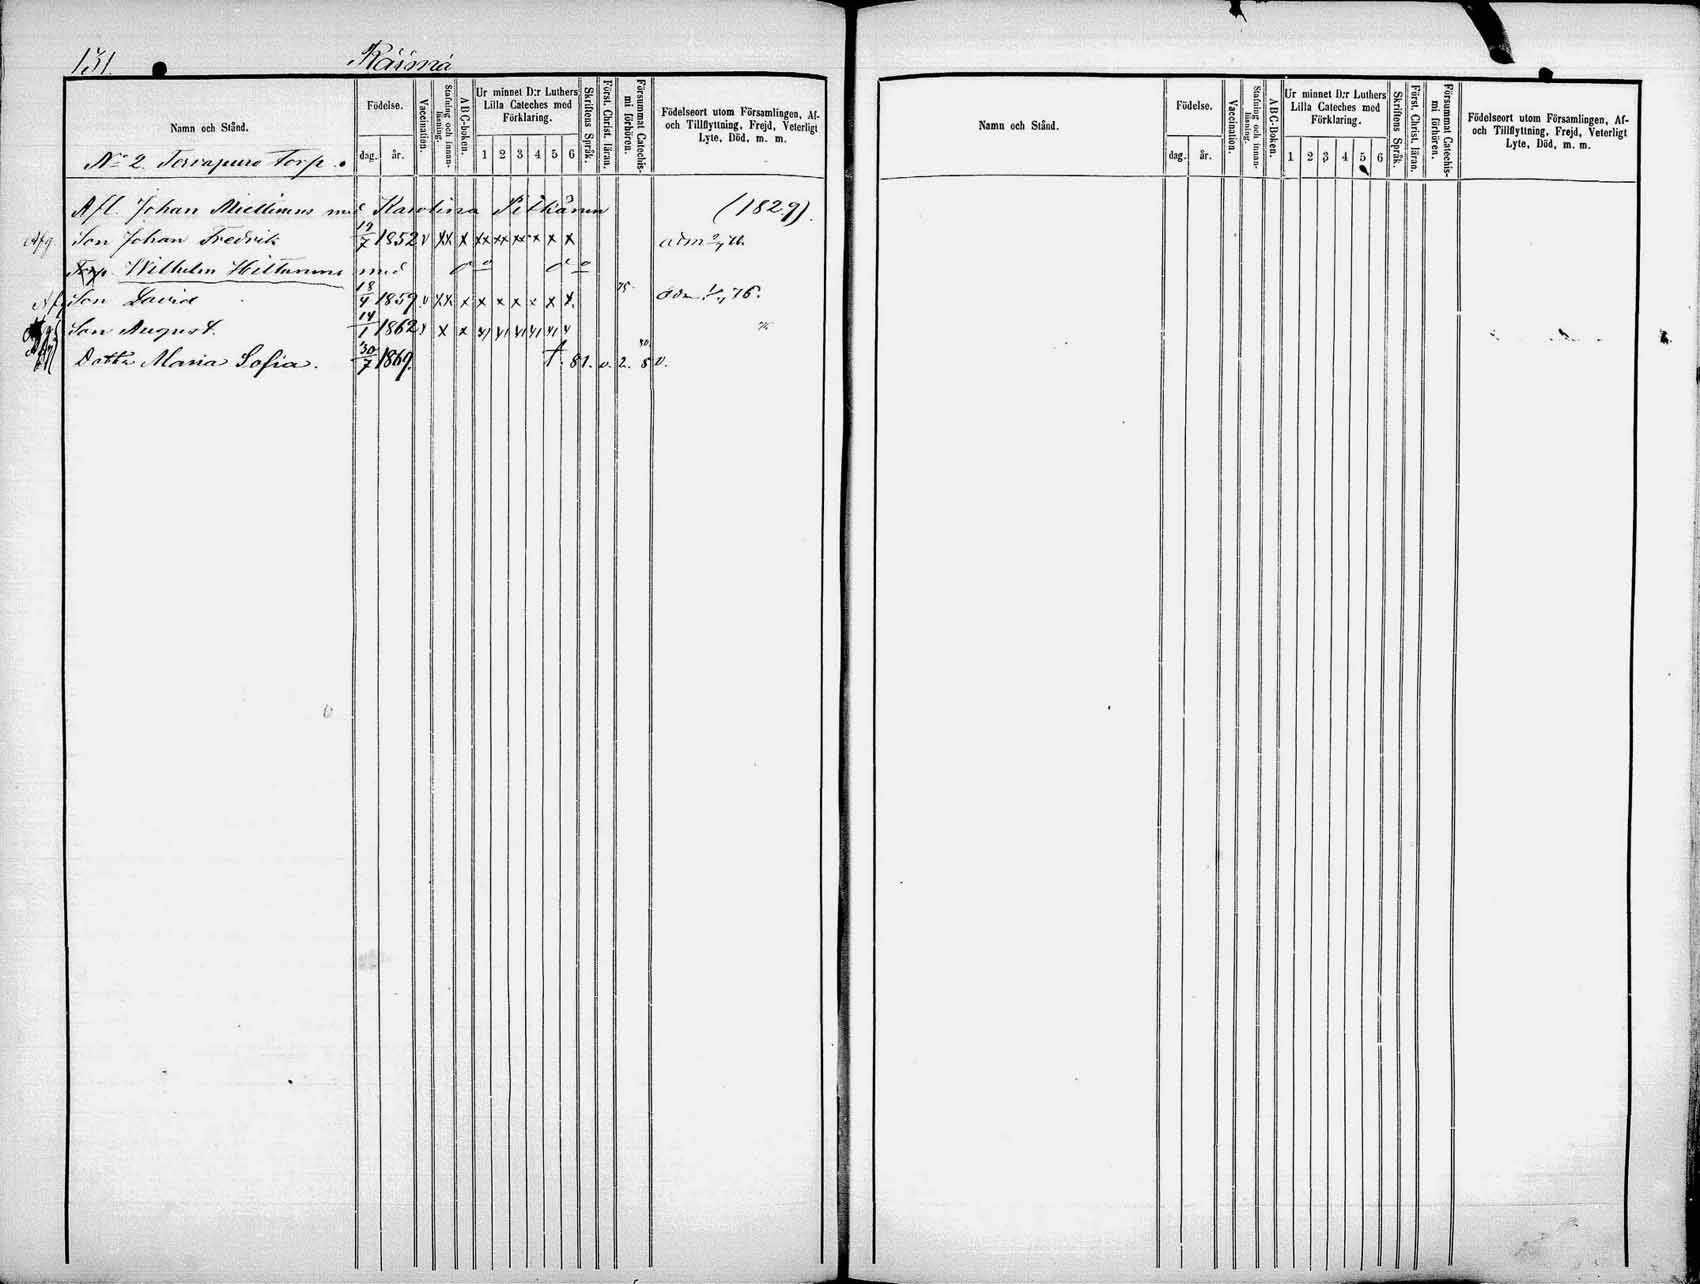 131. Räsmä
Namn och Stånd. Födelse. dag. år. Vaccination. Stafning och innan-läsning. ABC-boken. Ur minnet D:r Luthers Lilla Cateches med Förklaring. 1 2 3 4 5 6 Skriftens Språk. Först. Christ. läran. Försummat Catechis-mi förhören. Födelseort utom Församlingen, Af- och Tillflyttning, Frejd, Veterligt Lyte, Död, m. m.
No 2. Torvapuro Torp.
Afl. Johan Miettinens med Karolina Pitkänen (1829).
Afg. Son Johan Fredrik 19/7 1852 v xx x xx xx xx x x x adm
Torp. Wilhelm Hiltunens med
Son David 18/4 1859. v xx x x x x x x x 75 76.
Son August. 14/1 1862 x x
Dottr Maria Sofia. 30/7 1869. † 81. v. 2. 80
Namn och Stånd. Födelse. dag. år. Vaccination. Stafning och innan-läsning. ABC-Boken. Ur minnet D:r Luthers Lilla Cateches med Förklaring. 1 2 3 4 5 6 Skriftens Språk. Först. Christ. läran. Försummat Catechis-mi förhören. Födelseort utom Församlingen, Af- och Tillflyttning, Frejd, Veterligt Lyte, Död, m. m.